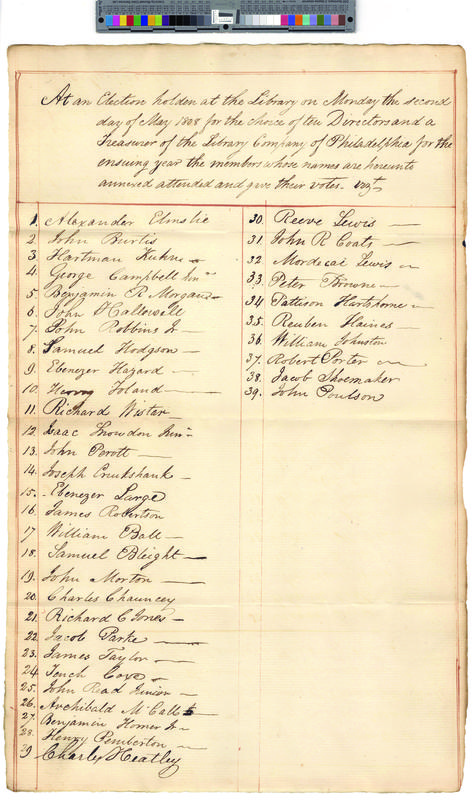 At an Election holden at the Library on Monday the second
day of May 1808 for the choice of ten Directors and a
Treasurer of the Library Company of Philadelphia for the
ensuing year the members whose names are hereunto
annexed attended and give their votes. viz.t
1. Alexander Elmslie
2. John Burtis
3. Hartman Kuhn
4. George Campbell
5. Benjamin R Morgan
6. John Hallowell
7. John Robbins Jr
8. Samuel Hodgson
9. Ebenezer Hazard
10. Henry Toland
11. Richard Wistar
12. Isaac Snowdon Junr
13. John Perott
14. Joseph Crukshank
15. Ebenezer Large
16. James Robertson
17 William Ball
18. Samuel Bleight
19. John Morton
20. Charles Chauncey
21. Richard C Jones
22. Jacob Parke
23. James Taylor
24 Tench Coxe
25. John Read Junior
26. Archibald McCall
27. Benjamin Horner Jr
28. Henry Pemberton
29 Charles Heatley
30. Reeve Lewis
31. John R Coats
32 Mordecai Lewis
33. Peter Browne
34 Pattison Hartshorne
35. Reuben Haines
36. William Johnston
37. Robert Porter
38. Jacob Shoemaker
39. John Poulson